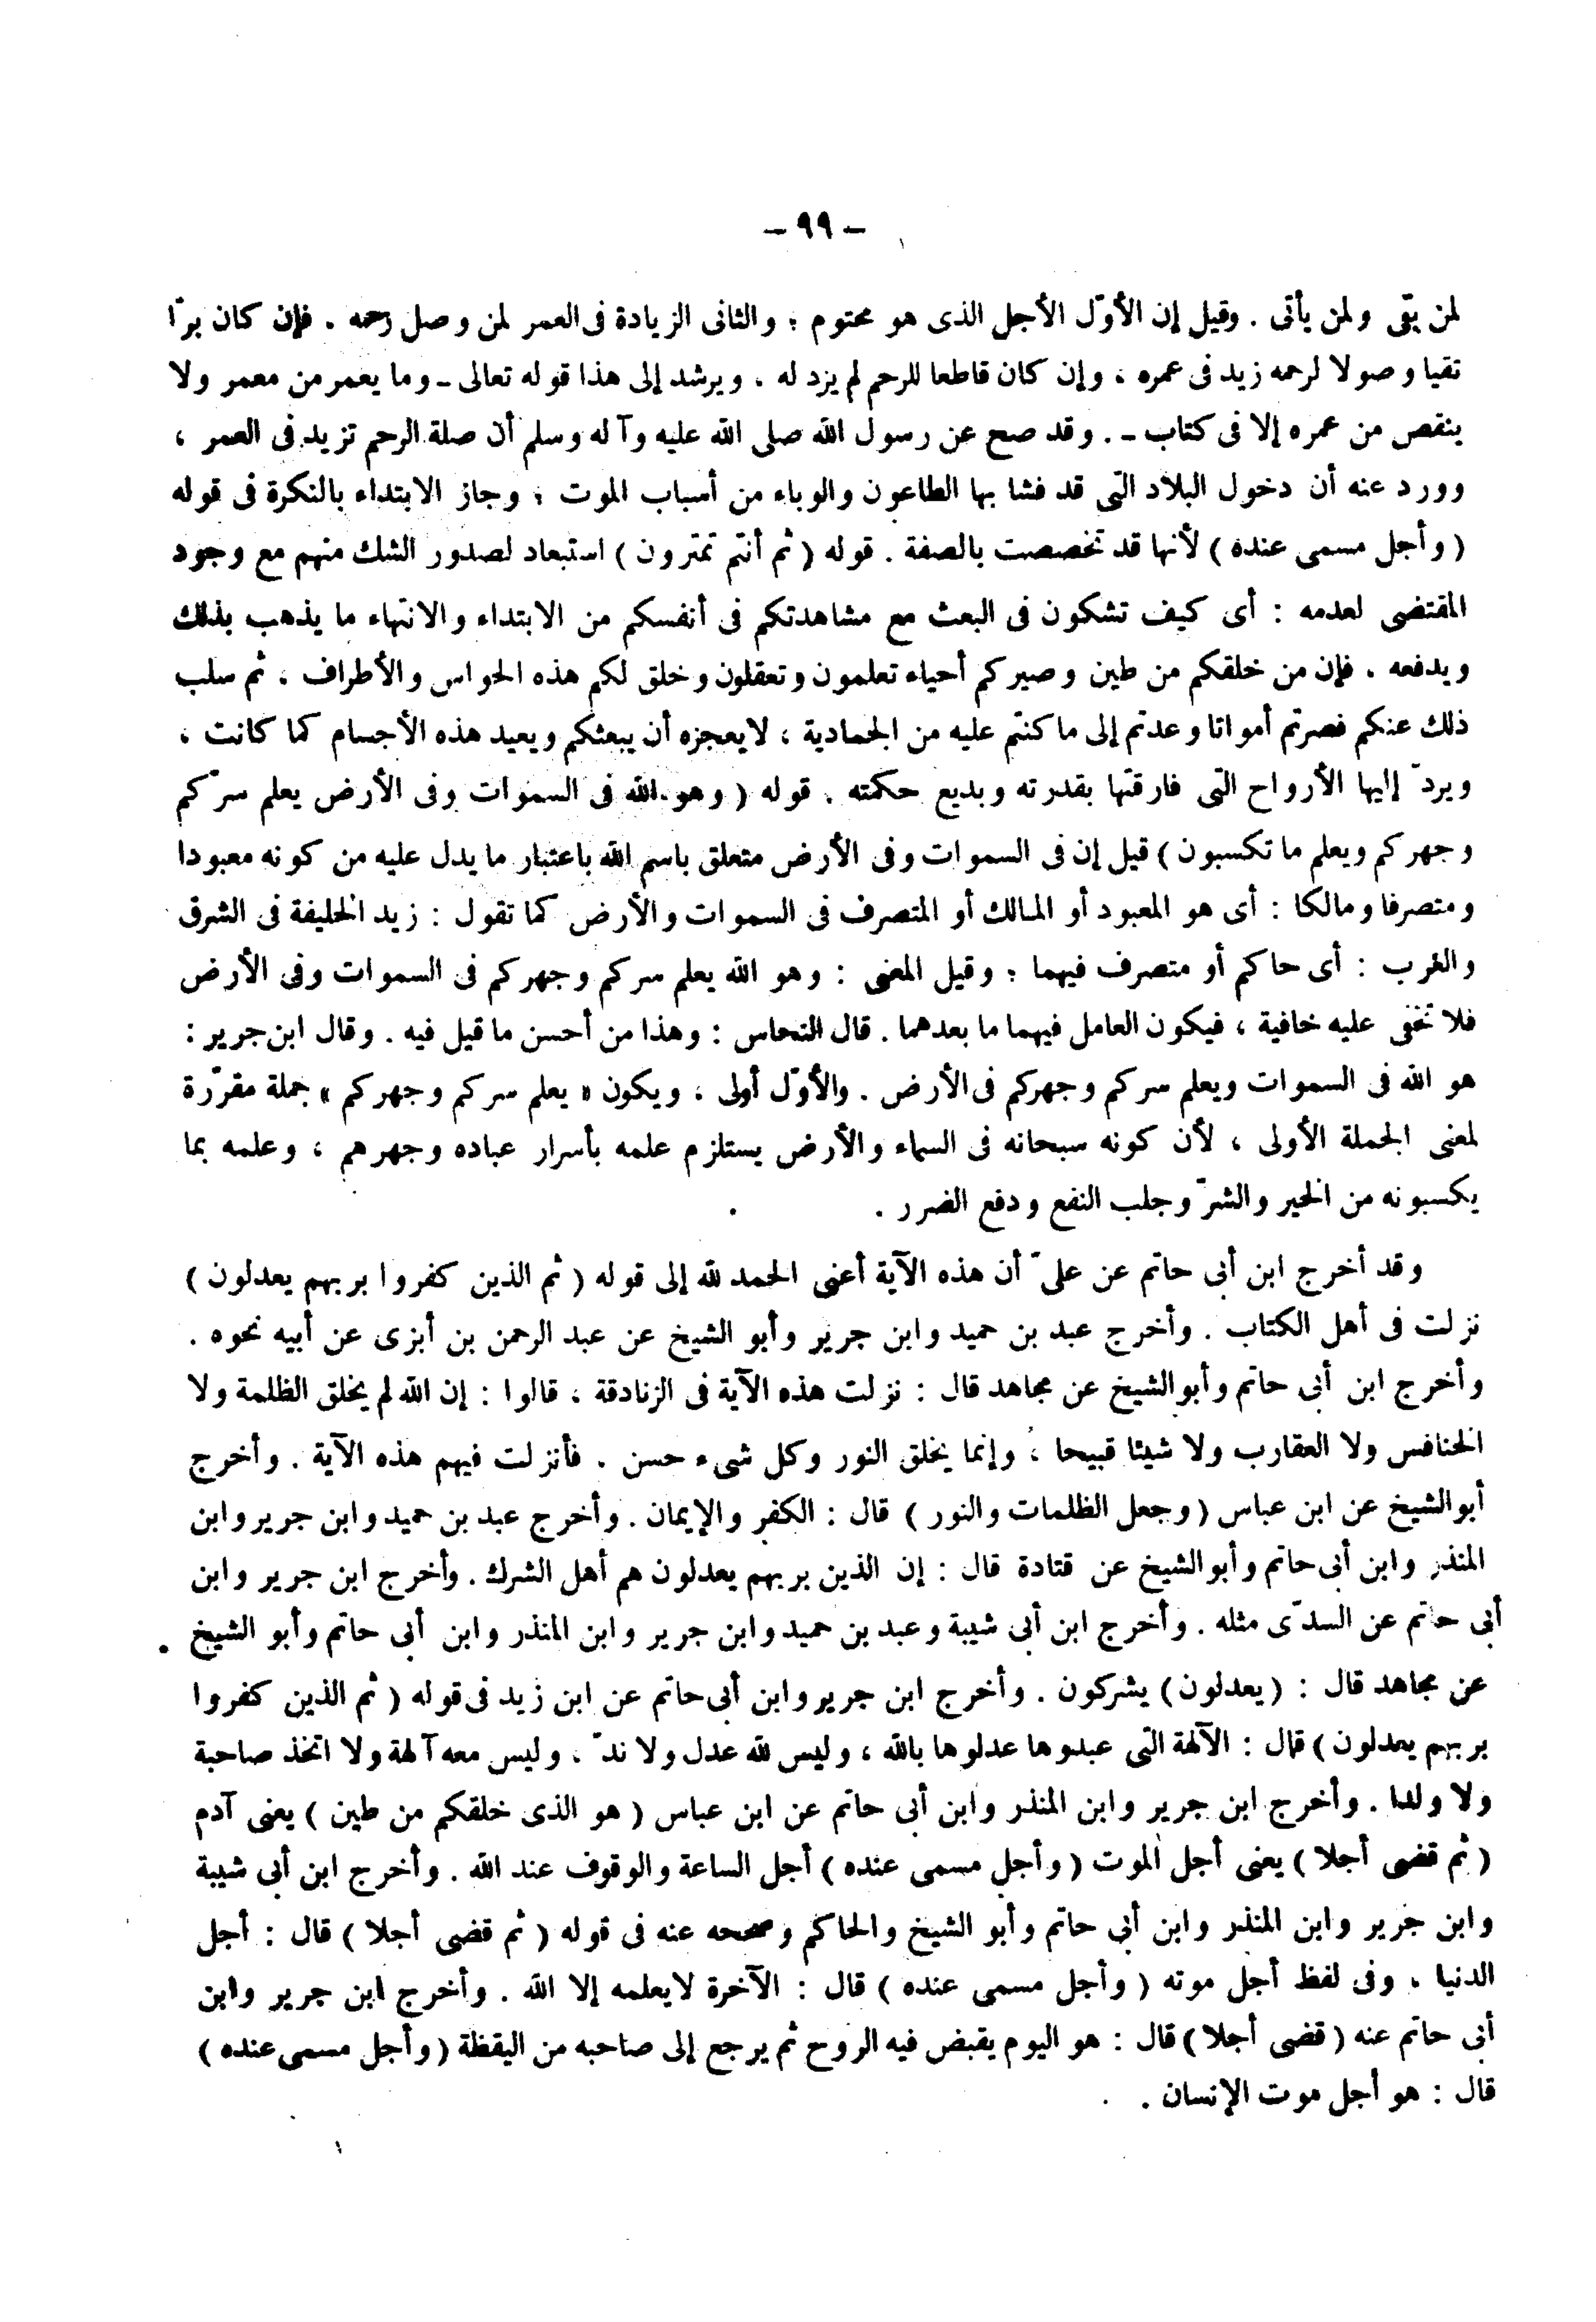 – ٩٩ –
لمن بقى ولمن يأتى . وقيل إن الأوّل الأجل الذى هو محتوم ؛ والثانى الزيادة فى العمر لمن وصل رحمه . فإن كان برّا
تقيا وصولا لرحمه زيد فى عمره ، وإن كان قاطعا للرحم لم يزد له ، ويرشد إلى هذا قوله تعالى - وما يعمر من معمر ولا
ينقص من عمره إلا فى كتاب - . وقد صح عن رسول الله صلى الله عليه وآله وسلم أن صلة الرحم تزيد فى العمر ،
وورد عنه أن دخول البلاد التى قد فشا بها الطاعون والوباء من أسباب الموت ؛ وجاز الابتداء بالنكرة فى قوله
( وأجل مسمى عنده ) لأنها قد تخصصت بالصفة . قوله ( ثم أنتم تمترون ) استبعاد لصدور الشك منهم مع وجود
المقتضى لعدمه : أى كيف تشكون فى البعث مع مشاهدتكم فى أنفسكم من الابتداء والانتهاء ما يذهب بذلك
ويدفعه . فإن من خلقكم من طين وصيركم أحياء تعلمون وتعقلون وخلق لكم هذه الحواس والأطراف ، ثم سلب
ذلك عنكم فصرتم أمواتا وعدتم إلى ما كنتم عليه من الجمادية ، لايعجزه أن يبعثكم ويعيد هذه الأجسام كما كانت ،
ويردّ إليها الأرواح التى فارقتها بقدرته وبديع حكمته . قوله ( وهو الله فى السموات وفى الأرض يعلم سرّكم
وجهركم ويعلم ما تكسبون ) قيل إن فى السموات وفى الأرض متعلق باسم الله باعتبار ما يدل عليه من كونه معبودا
ومتصرفا ومالكا : أى هو المعبود أو المالك أو المتصرف فى السموات والأرض كما تقول : زيد الخليفة فى الشرق
والغرب : أى حاكم أو متصرف فيهما ؛ وقيل المعنى : وهو الله يعلم سركم وجهركم فى السموات وفى الأرض
فلا تخفى عليه خافية ، فيكون العامل فيهما ما بعدهما . قال النحاس : وهذا من أحسن ما قيل فيه . وقال ابن جرير :
هو الله فى السموات ويعلم سركم وجهركم فى الأرض . والأوّل أولى ، ويكون « يعلم سركم وجهركم » جملة مقرّرة
لمعنى الجملة الأولى ، لأن كونه سبحانه فى السماء والأرض يستلزم علمه بأسرار عباده وجهرهم ، وعلمه بما
يكسبونه من الخير والشرّ وجلب النفع ودفع الضرر .
وقد أخرج ابن أبى حاتم عن علىّ أن هذه الآية أعنى الحمد لله إلى قوله ( ثم الذين كفروا بربهم يعدلون )
نزلت فى أهل الكتاب . وأخرج عبد بن حميد وابن جرير وأبو الشيخ عن عبد الرحمن بن أبزى عن أبيه نحوه .
وأخرج ابن أبى حاتم وأبو الشيخ عن مجاهد قال : نزلت هذه الآية فى الزنادقة ، قالوا : إن الله لم يخلق الظلمة ولا
الخنافس ولا العقارب ولا شيئا قبيحا ، وإنما يخلق النور وكل شىء حسن . فأنزلت فيهم هذه الآية . وأخرج
أبو الشيخ عن ابن عباس ( وجعل الظلمات والنور ) قال : الكفر والإيمان . وأخرج عبد بن حميد وابن جرير وابن
المنذر وابن أبى حاتم وأبو الشيخ عن قتادة قال : إن الذين بربهم يعدلون هم أهل الشرك . وأخرج ابن جرير وابن
أبى حاتم عن السدّى مثله . وأخرج ابن أبى شيبة وعبد بن حميد وابن جرير وابن المنذر وابن أبى حاتم وأبو الشيخ
عن مجاهد قال : ( يعدلون ) يشركون . وأخرج ابن جرير وابن أبى حاتم عن ابن زيد فى قوله ( ثم الذين كفروا
بربهم يعدلون ) قال : الآلهة التى عبدوها عدلوها بالله ، وليس لله عدل ولا ندّ ، وليس معه آلهة ولا اتخذ صاحبة
ولا ولدا . وأخرج ابن جرير وابن المنذر وابن أبى حاتم عن ابن عباس ( هو الذى خلقكم من طين ) يعنى آدم
( ثم قضى أجلا ) يعنى أجل الموت ( وأجل مسمى عنده ) أجل الساعة والوقوف عند الله . وأخرج ابن أبى شيبة
وابن جرير وابن المنذر وابن أبى حاتم وأبو الشيخ والحاكم وصححه عنه فى قوله ( ثم قضى أجلا ) قال : أجل
الدنيا ، وفى لفظ أجل موته ( وأجل مسمى عنده ) قال : الآخرة لايعلمه إلا الله . وأخرج ابن جرير وابن
أبى حاتم عنه ( قضى أجلا ) قال : هو اليوم يقبض فيه الروح ثم يرجع إلى صاحبه من اليقظة ( وأجل مسمى عنده )
قال : هو أجل موت الإنسان .